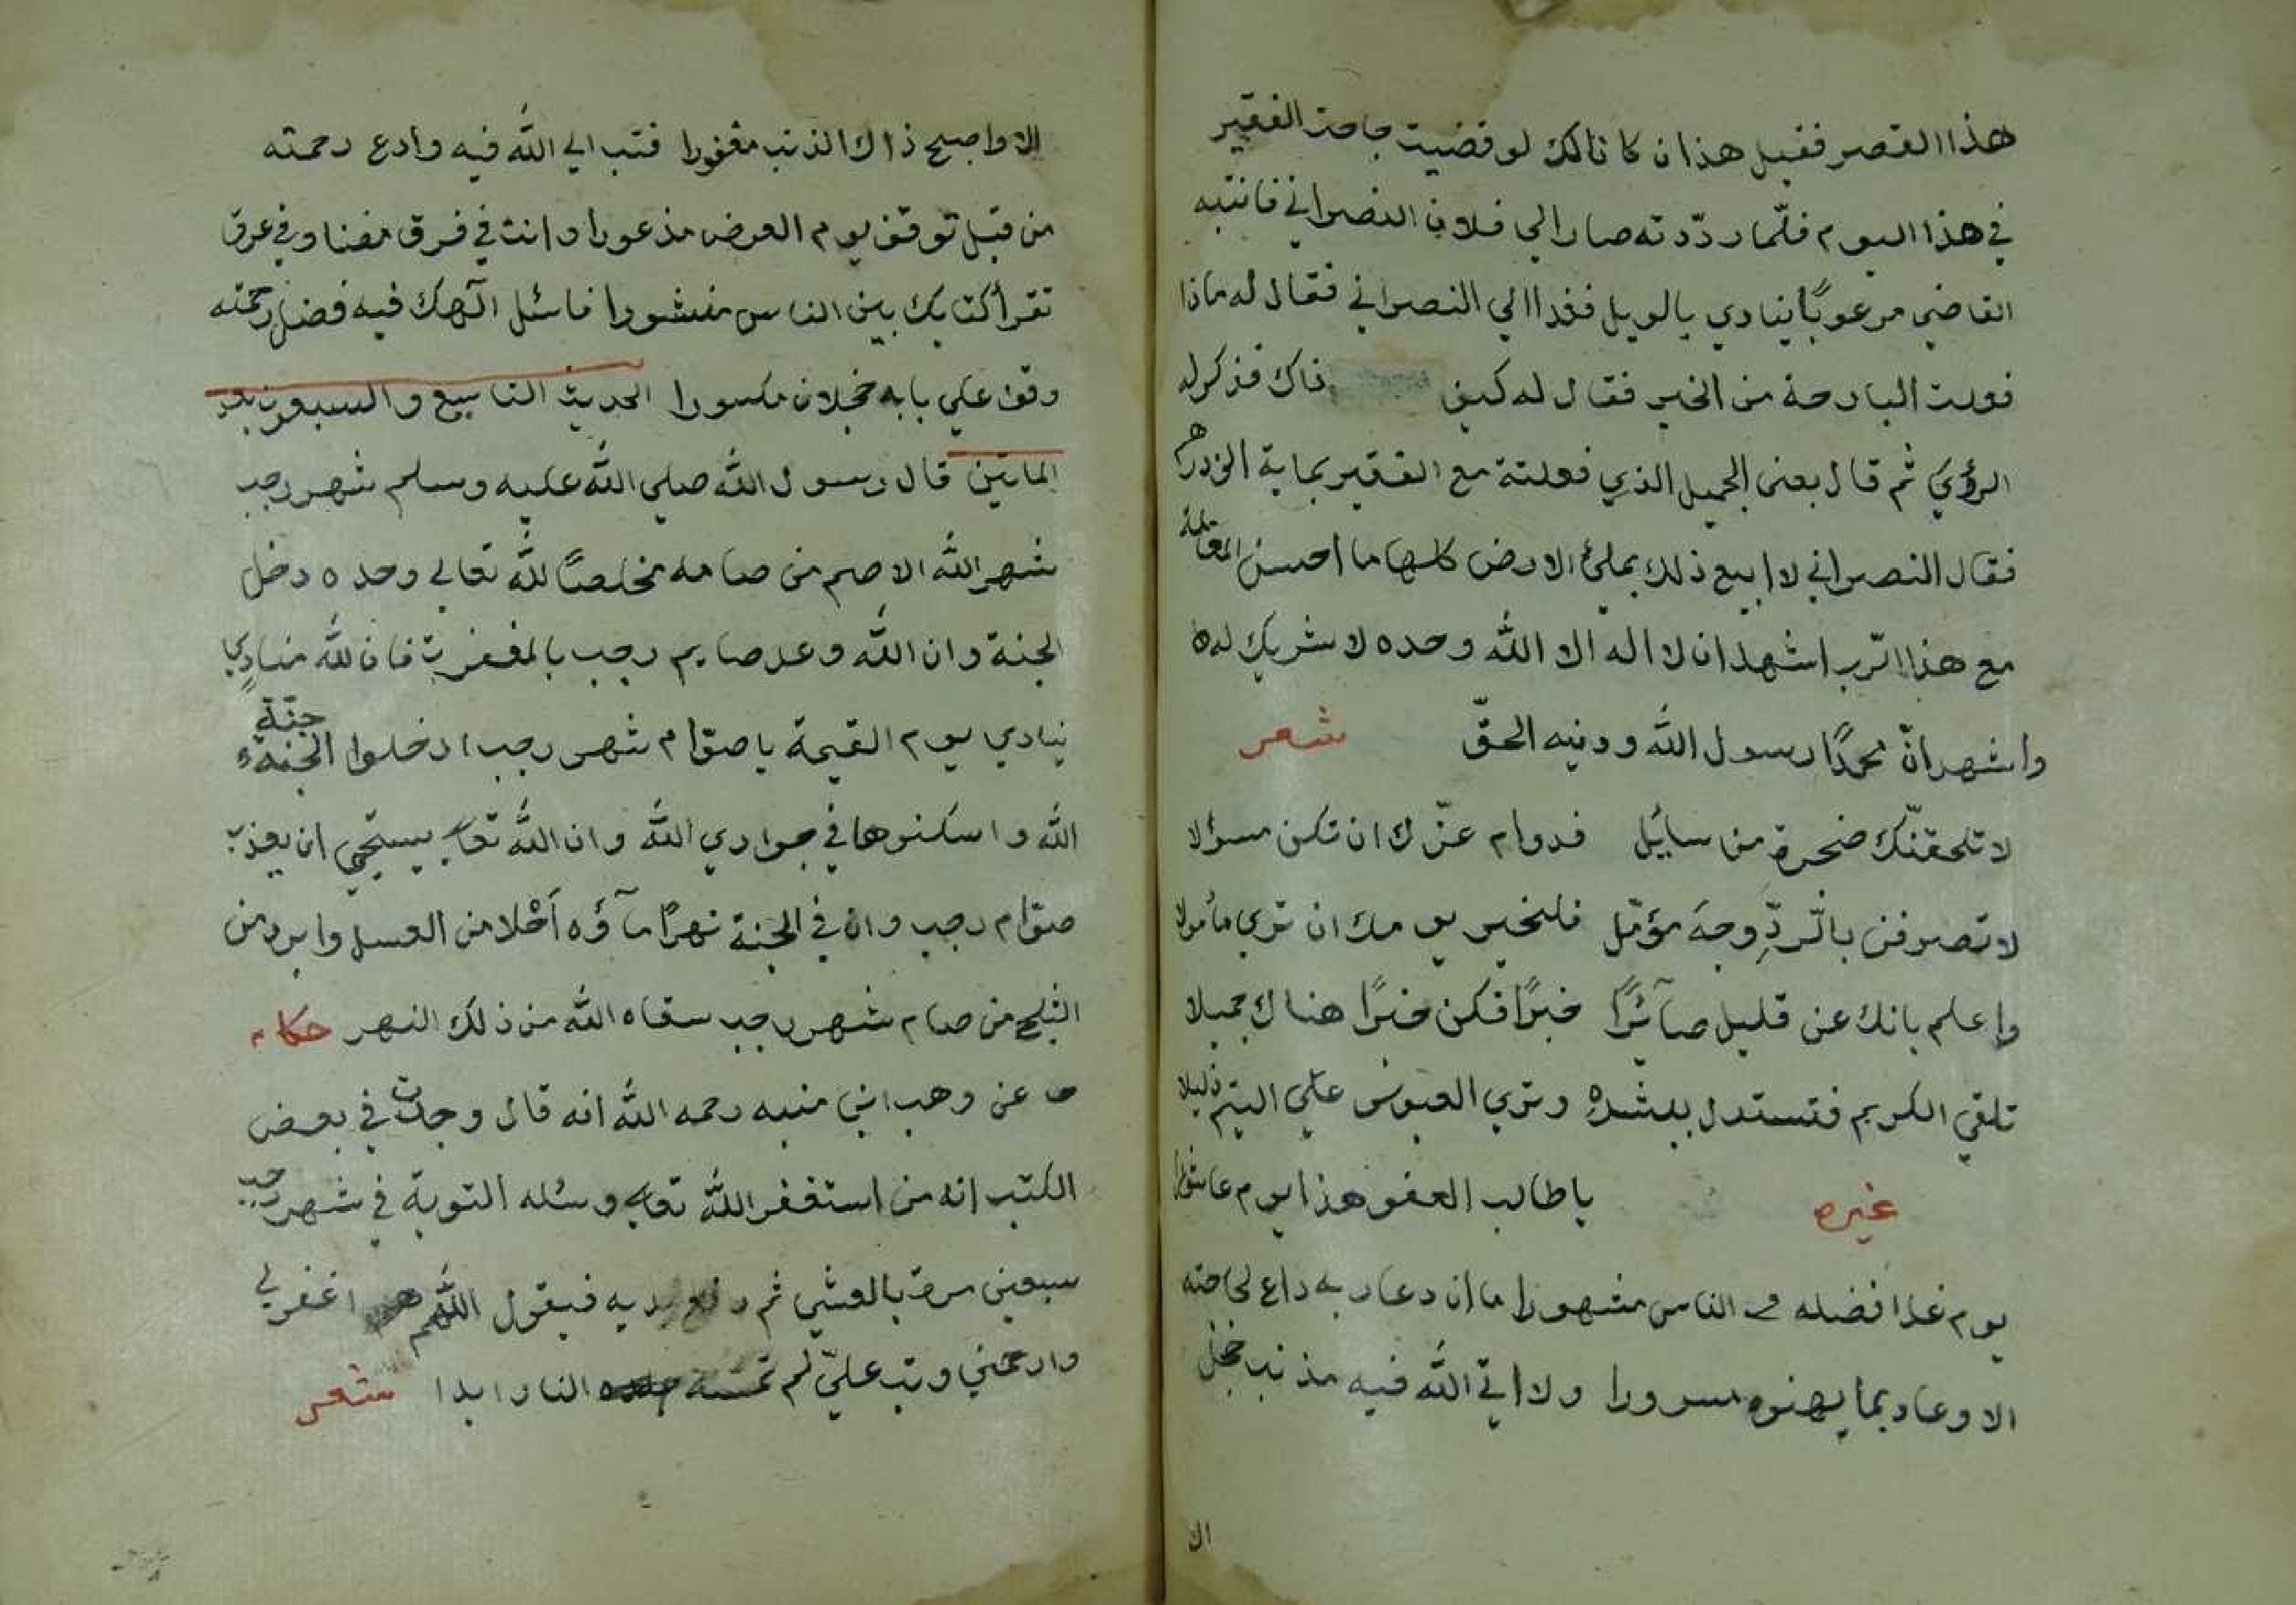 هذا القصر فقيل هذان كانا لك لو قضيت حاجة الفقير
في هذا اليوم فلمّا رددته صارا لي فلان النصراني فانتبه
القاضي مرعوبًا ينادي بالويل فغدا الي النصراني فقال له ماذا
فعلت البارحة من الخير فقال له كيف ذاك فذكر له
الرؤيَ ثم قال بعني الجميل الذي فعلته مع الفقير بماية الف درهم
فقال النصراني لا ابيع ذلك بملئ الارض كلها ما احسن المعاملة
مع هذا الرّب اشهد ان لا اله الا الله وحده لا شريك له
واشهد انّ محمدًا رسول الله ودينه الحقّ شعر
لا تلحقنّك ضجرة من سايل فدوام عزّك ان تكن مسؤلا
لا تصرفن بالرّدِّ وجهَ مؤمّل فلخير يومك ان تري مأمولا
واعلم بانك عن قليل صآئرًا خبرًا فكن خبرًا هناك جميلا
تلقي الكريم فتستدل ببشره وتري العبوس علي اليتيم ذليلا
غيره يا طالب العفو هذا يوم عاشورا
يوم غدا فضله في الناس مشهورا ما ان دعا ربه داع لحاجته
الا وعاد بما يهنوه مسرورا ولا اتي الله فيه مذنب خجل
الا
الا واصبح ذاك الذنب مغفورا فتب الي الله فيه وادع رحمته
من قبل توقف يوم العرض مذعورا وانت في فرق مضنا وفي عرق
تقرأ كتابك بين الناس منشورا فاسئل الهك فيه فضل رحمته
وقف علي بابه خجلان مكسورا الحديث التاسع والسبعون بعد
الماتين قال رسول الله صلي الله عليه وسلم شهر رجب
شهر الله الاصم من صامه مخلصًا لله تعالي وحده دخل
الجنة وان الله وعد صايم رجب بالمغفرة فان لله مناديٍ
ينادي يوم القيمة يا صوّام شهر رجب ادخلوا الجنة جنّة
الله واسكنوها في جواري الله وان الله تعالي يستحي ان يعذب
صوّام رجب وان في الجنة نهرًا مآؤه أحْلا من العسل وابرد من
الثلج من صام شهر رجب سقاه الله من ذلك النهر حكاية
عن وهب ابن منبه رحمه الله انه قال وجدت في بعض
الكتب انه من استغفر الله تعالي وسئله التوبة في شهر رجب
سبعين مرة بالعشي ثم رفع يديه فيقول اللهم اغفر لي
وارحمني وتب عليّ لم تمسه النار ابدا شعر